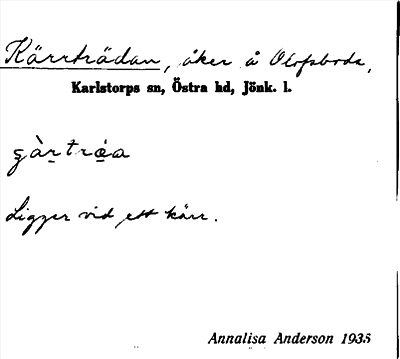 Kärrträdan, åker å Olofsboda,
Karlstorps sn, Östra hd, Jönk. l.
gàrtráa
Ligger vid ett kärr.
Annalisa Anderson 1935